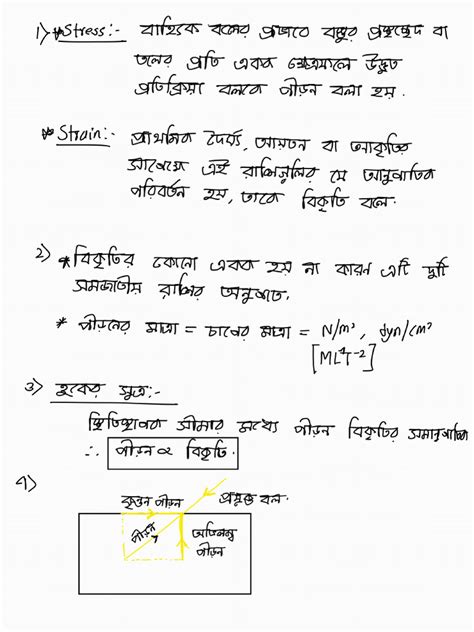 1) * Stress:- বাহ্যিক বলের প্রভাবে বস্তুর প্রস্থচ্ছেদ বা
তলের প্রতি একক ক্ষেত্রফলে উদ্ভূত
প্রতিক্রিয়া বলকে পীড়ন বলা হয়.
* Strain:- প্রাথমিক দৈর্ঘ্য, আয়তন বা আকৃতির
সাপেক্ষে এই রাশিগুলির যে আনুপাতিক
পরিবর্তন হয়, তাকে বিকৃতি বলে.
2) * বিকৃতির কোনো একক হয় না কারণ এটি দুটি
সমজাতীয় রাশির অনুপাত.
* পীড়নের মাত্রা = চাপের মাত্রা = N/m², dyn/cm²
3) হুকের সূত্র:-
স্থিতিস্থাপক সীমার মধ্যে পীড়ন বিকৃতির সমানুপাতিক
∴ পীড়ন ∝ বিকৃতি.
4)
কৃন্তন পীড়ন প্রযুক্ত বল.
পীড়ন অভিলম্ব
পীড়ন